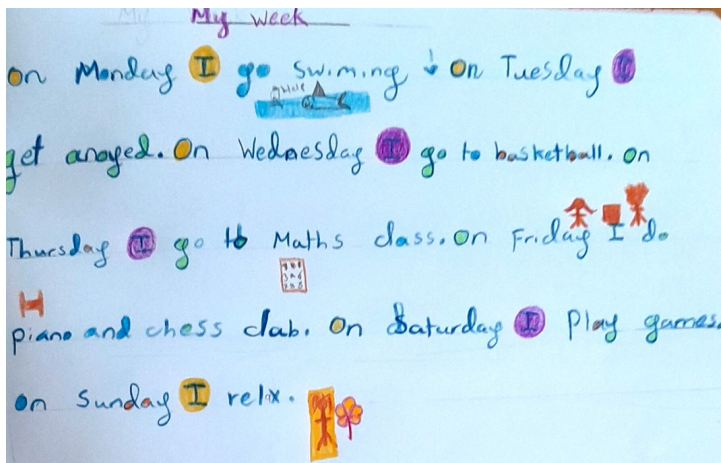 My week
on Monday I go Swiming ↓ on Tuesday I
get anoyed. On Wednesday I go to basketball. on
Thursday I go to Maths class. on Friday I do
piano and chess clab. On Saturday I Play games.
on Sunday I relix.